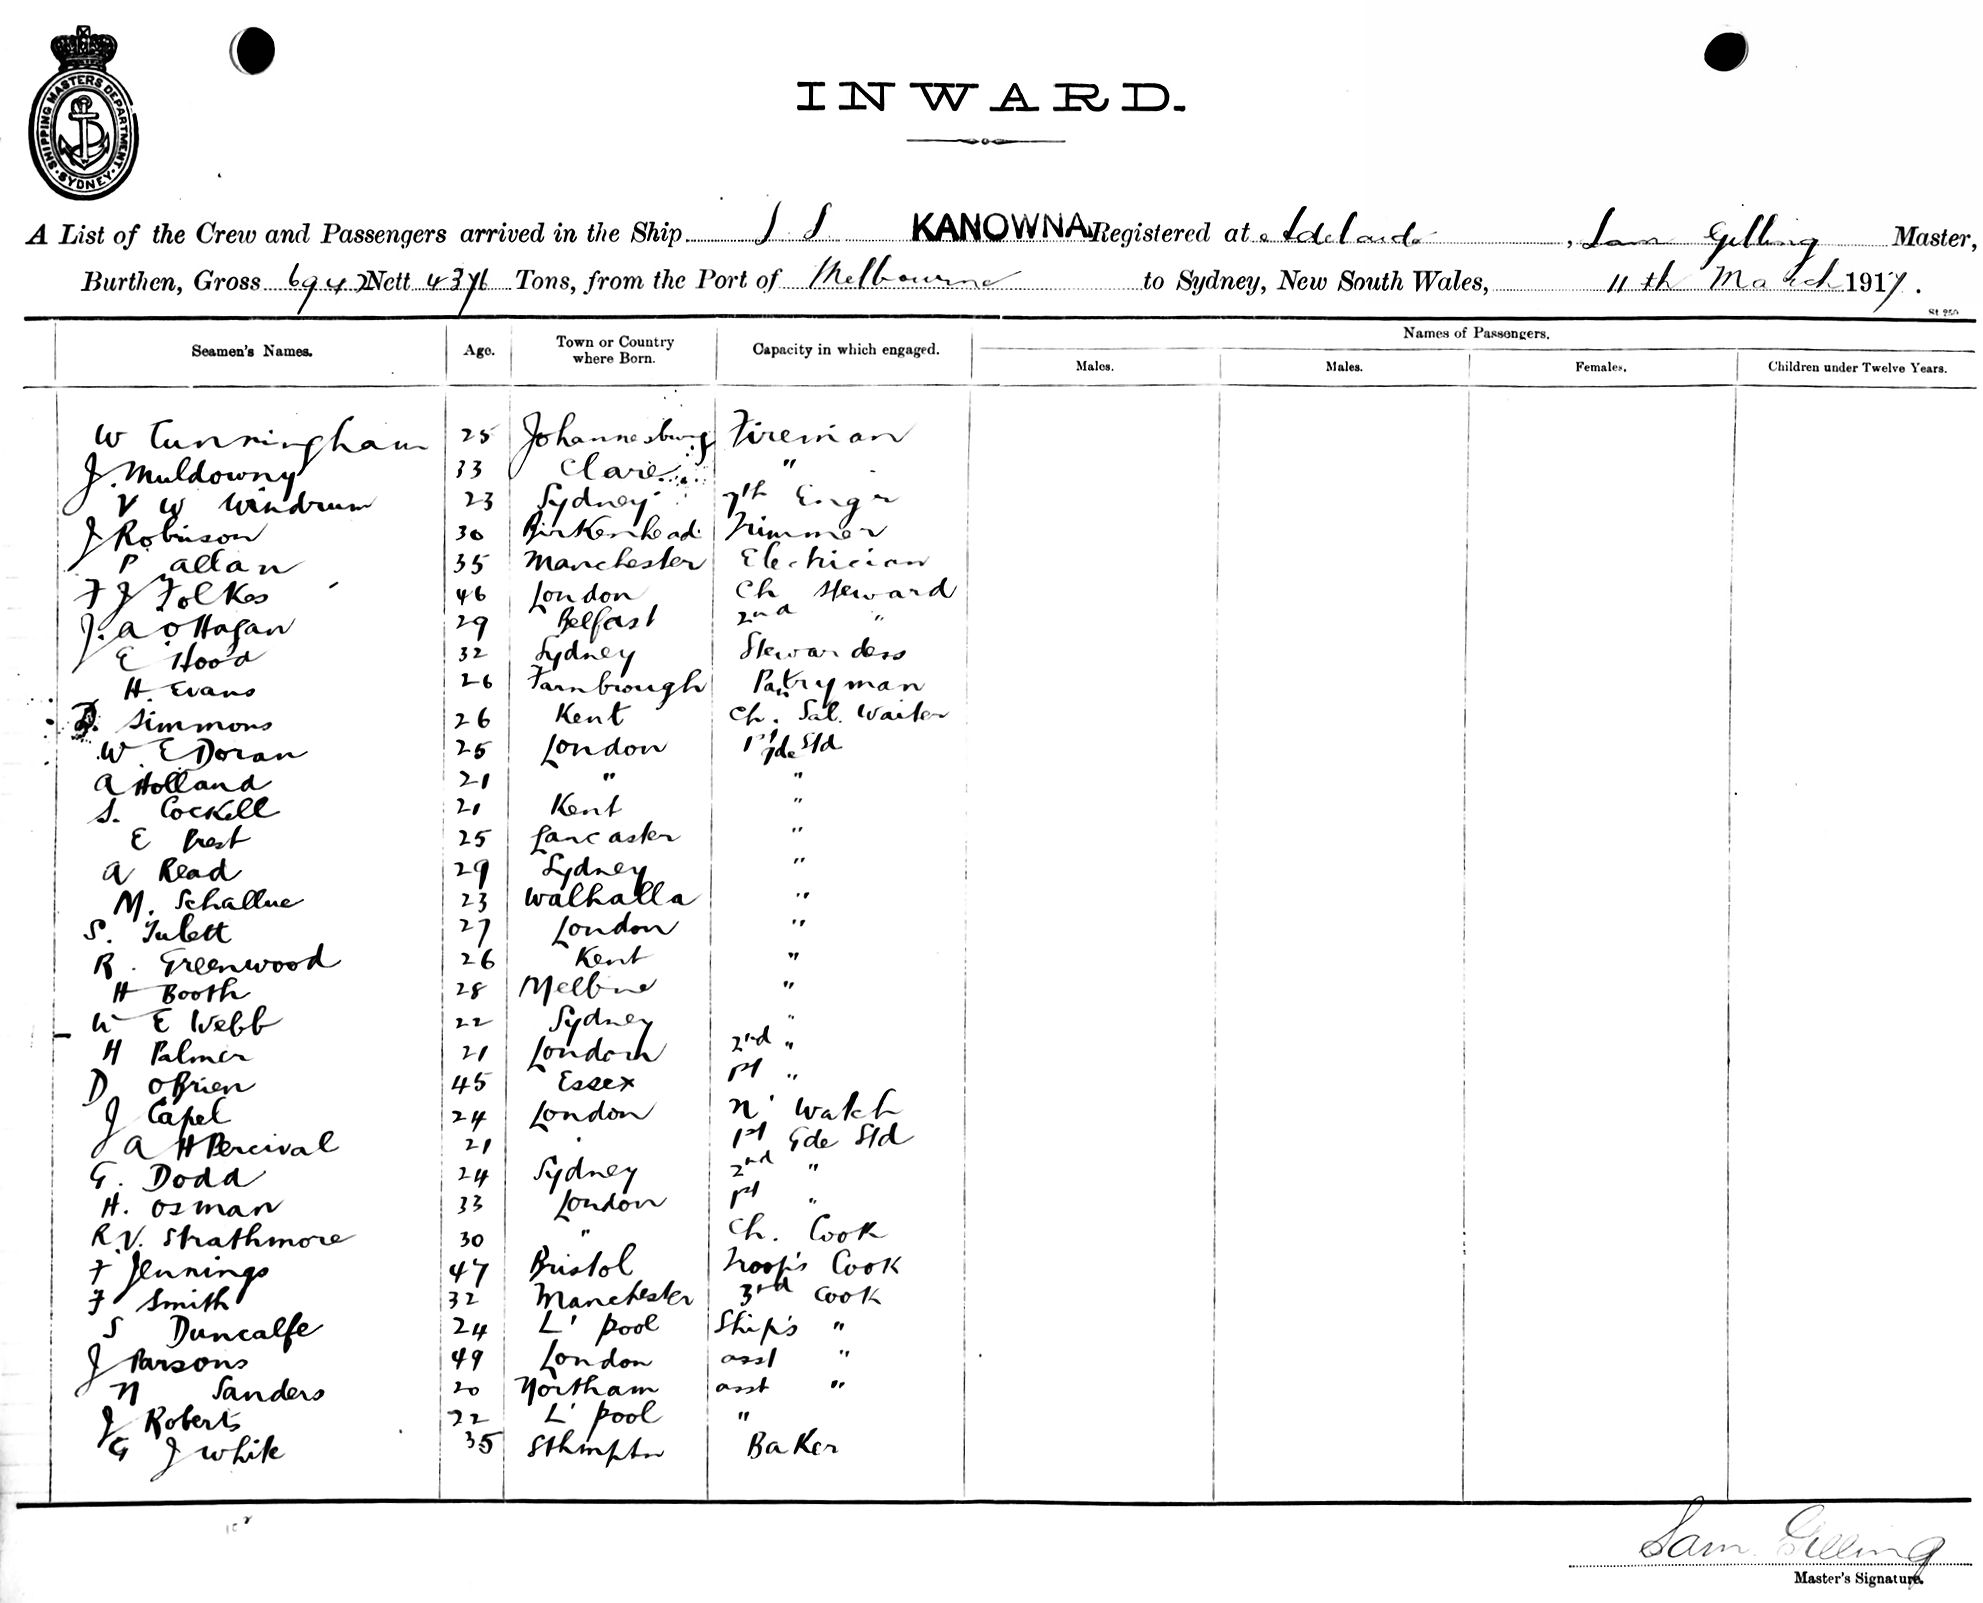 SHIPPING MASTERS DEPARTMENT. SYDNEY.
INWARD.
A List of the Crew and Passengers arrived in the Ship S S KANOWNA Registered at Adelaide, Sam Gilling Master,
Burthen, Gross 6942 Nett 4376 Tons, from the Port of Melbourne to Sydney, New South Wales, 11th March 1917.
Names of Passengers.
Seamen's Names. Age. Town or Country where Born. Capacity in which engaged. Males. Males. Females. Children under Twelve Years.
W Cunningham 25 Johannesburg Fireman
J. Muldowny 33 Clare "
V W Windrum 23 Sydney 7th Engr
J Robinson 30 Birkenhead Trimmer
P Allan 35 Manchester Electrician
F J Folkes 46 London Ch Steward
J. A O'Hagan 29 Belfast 2nd "
E Hood 32 Sydney Stewardess
H. Evans 26 Farnbrough Pantryman
Simmons 26 Kent Ch. Sal. Waiter
W E Doran 25 London 1st Gde Std
A Holland 21 " "
S. Cockell 21 Kent "
E Prest 25 Lancaster "
A Read 29 Sydney "
M. Schallue 23 Walhalla "
S. Tulett 27 London "
R. Greenwood 26 Kent "
H Booth 28 Melbne "
W E Webb 22 Sydney "
H Palmer 21 London 2nd "
D OBrien 45 Essex 1st "
J Capel 24 London N' Watch
A H Percival 21 " 1st Gde Std
G. Dodd 24 Sydney 2nd "
H. Osman 33 London 1st "
R.V. Strathmore 30 " Ch. Cook
F Jennings 47 Bristol Troop's Cook
F Smith 32 Manchester 3rd Cook
S Duncalfe 24 L'pool Ship's "
J Parsons 49 London asst "
N Sanders 20 Northam asst "
J Roberts 22 L'pool "
G J White 35 Sthmptn Baker
Sam Gilling
Master's Signature.